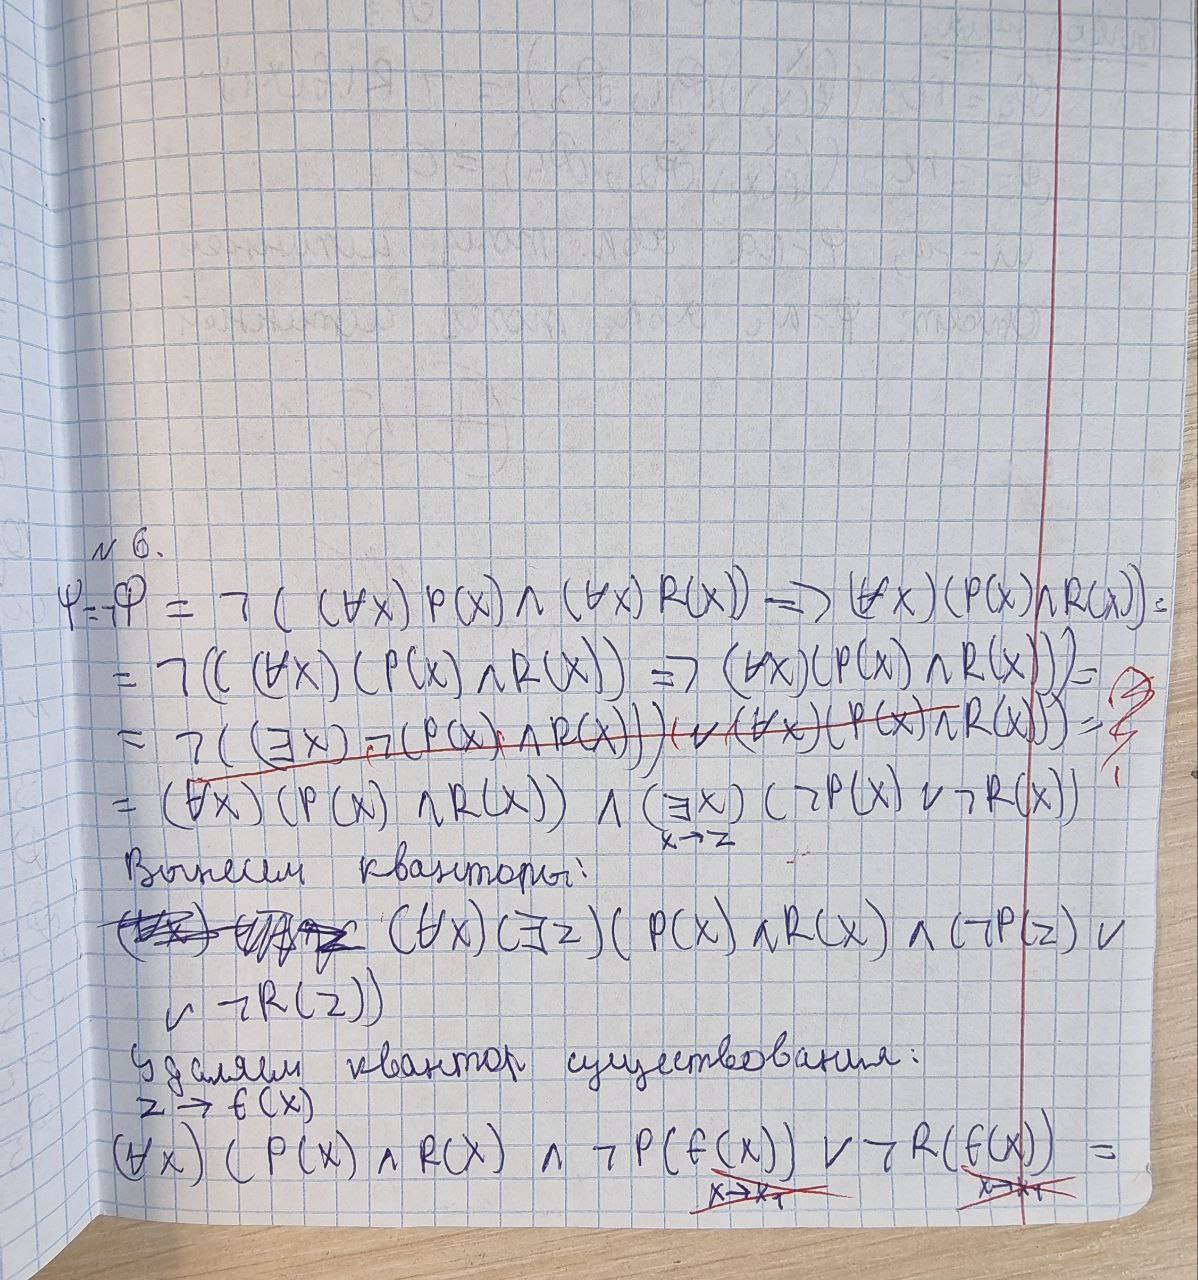 N 6.
ψ=¬φ = ¬((∀x)P(x)∧(∀x)R(x)) => (∀x)(P(x)∧R(x)) =
= ¬(((∀x)(P(x)∧R(x)) => (∀x)(P(x)∧R(x))) =
= ¬((∃x)¬(P(x)∧R(x))) ∨ (∀x)(P(x)∧R(x))) =
= (∀x)(P(x)∧R(x)) ∧ (∃x)(¬P(x)∨¬R(x))
x→z
Вынесем кванторы:
(∀x)(∃z)(P(x)∧R(x)∧(¬P(z)∨
∨¬R(z))
Удаляем квантор существования:
z→f(x)
(∀x)(P(x)∧R(x)∧¬P(f(x))∨¬R(f(x)) =
x→x₁ x→x₁